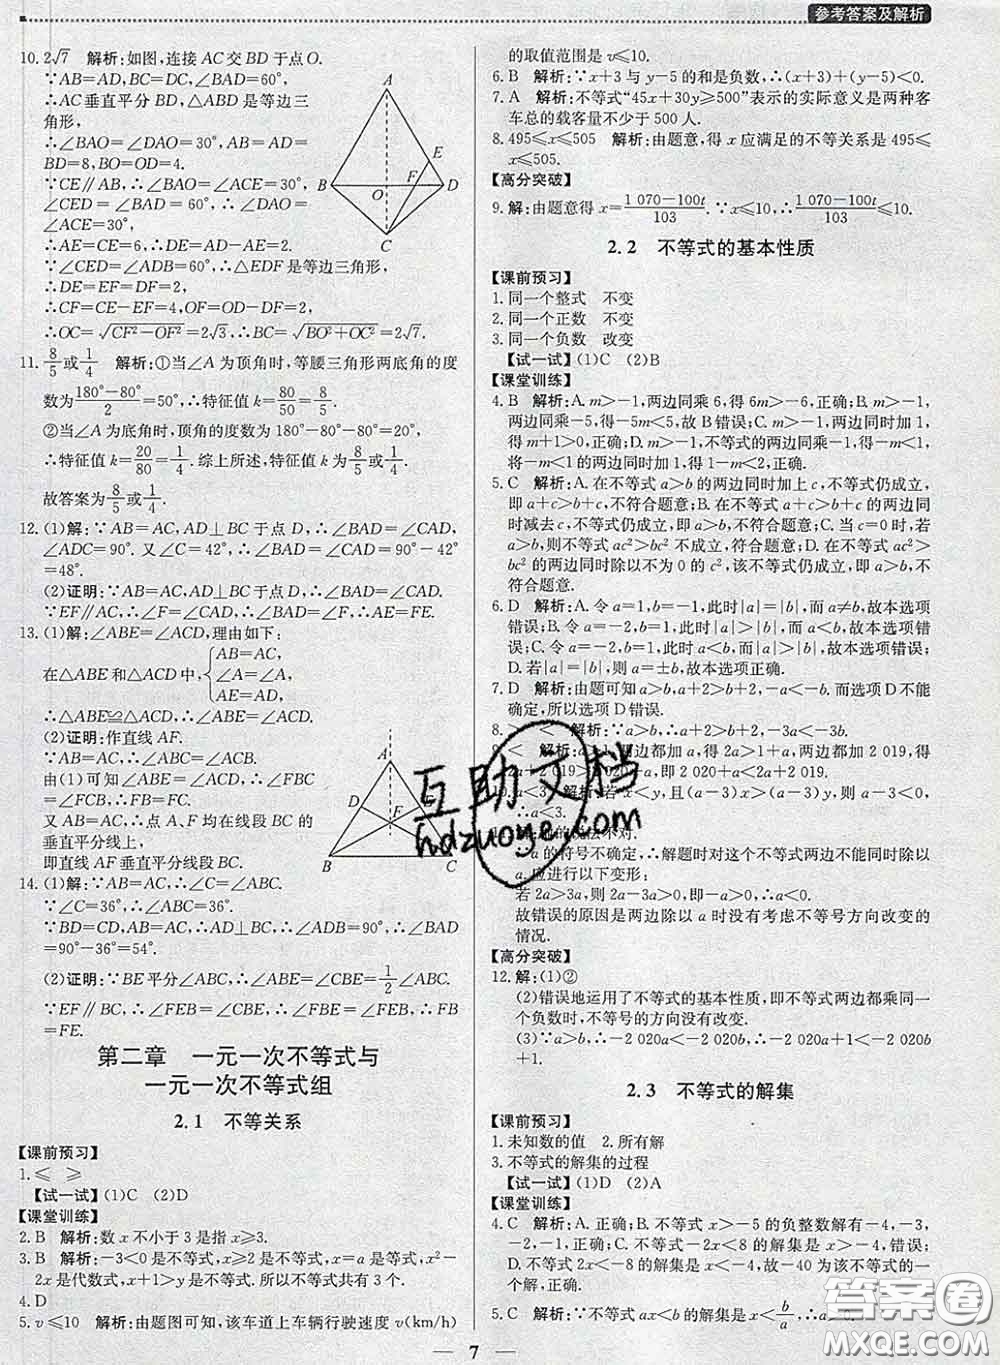 参考答案及解析
10. 2√7　解析:如图,连接 AC 交 BD 于点 O.
∵AB=AD, BC=DC,∠BAD=60°,
∴AC 垂直平分 BD,△ABD 是等边三
角形,
∴∠BAO=∠DAO=30°, AB=AD=
BD=8,BO=OD=4.
∵CE∥AB,∴∠BAO=∠ACE=30°,
∠CED=∠BAD=60°,∴∠DAO=
∠ACE=30°,
∴AE=CE=6,∴DE=AD-AE=2.
∵∠CED=∠ADB=60°,∴△EDF 是等边三角形,
∴DE=EF=DF=2,
∴CF=CE-EF=4, OF=OD-DF=2,
∴OC=√(CF²-OF²)=2√3,∴BC=√(BO²+OC²)=2√7.
A
E
B
O
F
D
C
11. 8/5或1/4　解析:①当∠A 为顶角时,等腰三角形两底角的度
数为(180°-80°)/2=50°,∴特征值 k=80/50=8/5.
②当∠A 为底角时,顶角的度数为 180°-80°-80°=20°,
∴特征值 k=20/80=1/4. 综上所述,特征值 k 为8/5或1/4.
故答案为8/5或1/4.
12. (1)解:∵AB=AC,AD⊥BC 于点 D,∴∠BAD=∠CAD,
∠ADC=90°. 又∠C=42°,∴∠BAD=∠CAD=90°-42°
=48°.
(2)证明:∵AB=AC,AD⊥BC 于点 D,∴∠BAD=∠CAD.
∵EF∥AC,∴∠F=∠CAD,∴∠BAD=∠F,∴AE=FE.
13. (1)解:∠ABE=∠ACD,理由如下:
在△ABE 和△ACD 中, { AB=AC,
∠A=∠A,
AE=AD,
∴△ABE≌△ACD,∴∠ABE=∠ACD.
(2)证明:作直线 AF.
∵AB=AC,∴∠ABC=∠ACB.
由(1)可知∠ABE=∠ACD,
∴∠FBC=∠FCB,∴FB=FC.
又 AB=AC,∴点 A、F 均在线段 BC 的
垂直平分线上,
即直线 AF 垂直平分线段 BC.
A
D
E
F
B
C
14. (1)解:∵AB=AC,∴∠C=∠ABC.
∵∠C=36°,∴∠ABC=36°.
∵BD=CD,AB=AC,∴AD⊥BC,∴∠ADB=90°,∴∠BAD
=90°-36°=54°.
(2)证明:∵BE 平分∠ABC,∴∠ABE=∠CBE=1/2∠ABC.
∵EF∥BC,∴∠FEB=∠CBE,∴∠FBE=∠FEB,∴FB
=FE.
第二章　一元一次不等式与
一元一次不等式组
2.1　不等关系
【课前预习】
1. ≤　≥
【试一试】(1)C　(2)D
【课堂训练】
2. B　解析:数 x 不小于 3 是指 x≥3.
3. B　解析:-3<0 是不等式,x≥2 是不等式,x=a 是等式,x²-
2x 是代数式,x+1>y 是不等式. 所以不等式共有 3 个.
4. D
5. v≤10　解析:由题图可知,该车道上车辆行驶速度 v(km/h)
的取值范围是 v≤10.
6. B　解析:∵x+3 与 y-5 的和是负数,∴(x+3)+(y-5)<0.
7. A　解析:不等式“45x+30y≥500”表示的实际意义是两种客
车总的载客量不少于 500 人.
8. 495≤x≤505　解析:由题意,得 x 应满足的不等关系是 495≤
x≤505.
【高分突破】
9. 解:由题意得 x=(1 070-100t)/103. ∵x≤10,∴(1 070-100t)/103≤10.
2.2　不等式的基本性质
【课前预习】
1. 同一个整式　不变
2. 同一个正数　不变
3. 同一个负数　改变
【试一试】(1)C　(2)B
【课堂训练】
4. B　解析:A. m>-1,两边同乘 6,得 6m>-6,正确;B. m>-1,
两边同乘-5,得-5m<5,故 B错误;C. m>-1,两边同时加 1,
得 m+1>0,正确;D. m>-1,不等式的两边同乘-1,得-m<1,
将-m<1 的两边同时加 1,得 1-m<2,正确.
5. C　解析:A. 在不等式 a>b 的两边同时加上 c,不等式仍成立,
即 a+c>b+c,不符合题意;B. 在不等式 a+c>b+c 的两边同
时减去 c,不等式仍成立,即 a>b,不符合题意;C. 当 c=0 时,若
a>b,则不等式 ac²>bc² 不成立,符合题意;D. 在不等式 ac²>
bc² 的两边同时除以不为 0 的 c²,该不等式仍成立,即 a>b,不
符合题意.
6. D　解析:A. 令 a=1,b=-1,此时|a|=|b|,而 a≠b,故本选项
错误;B. 令 a=-2,b=1,此时|a|>|b|,而 a<b,故本选项错
误;C. 令 a=-2,b=1,此时|a|>|b|,而 a<b,故本选项错误;
D. 若|a|=|b|,则 a=±b,故本选项正确.
7. D　解析:由题可知 a>b,a+2>b+2,-a<-b,而选项 D不能
确定,所以选项 D 错误.
8. >　<　解析:∵a>b,∴a+2>b+2,-3a<-3b.
9. <　解析:a>1,两边都加 a,得 2a>a+1,两边都加 2 019,得
2a+2 019>a+2 020,即 2 020+a<2a+2 019.
10. a<3　解析:若 x<y,且(a-3)x>(a-3)y,则 a-3<0,
∴a<3.
的说法不对.
∵a 的符号不确定,∴解题时对这个不等式两边不能同时除以
a,应进行以下变形:
若 2a>3a,则 2a-3a>0,即-a>0,∴a<0.
故错误的原因是两边除以 a 时没有考虑不等号方向改变的
情况.
【高分突破】
12. 解:(1)②
(2)错误地运用了不等式的基本性质,即不等式两边都乘同一
个负数时,不等号的方向没有改变.
(3)∵a>b,∴-2 020a<-2 020b,∴-2 020a+1<-2 020b
+1.
2.3　不等式的解集
【课前预习】
1. 未知数的值　2. 所有解
3. 不等式的解集的过程
【试一试】(1)D　(2)A
【课堂训练】
4. C　解析:A. 正确;B. 不等式 x>-5 的负整数解有-4,-3,
-2,-1,正确;C. 不等式-2x<8 的解集是 x>-4,错误;
D. 不等式-2x<8 的解集是 x>-4,故-40 为该不等式的一
个解,正确.
5. C　解析:∵不等式 ax<b 的解集是 x<b/a,∴a>0.
互助文档
hdzuoye.com
答案圈
MXQE.COM
7